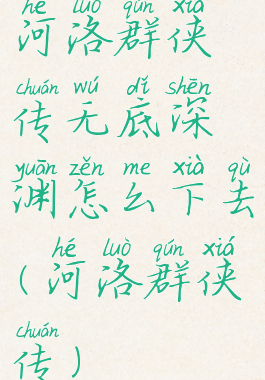 hé luò qún xiá
河洛群侠
chuán wú dǐ shēn
传无底深
yuān zěn me xià qù
渊怎么下去
hé luò qún xiá
(河洛群侠
chuán
传)